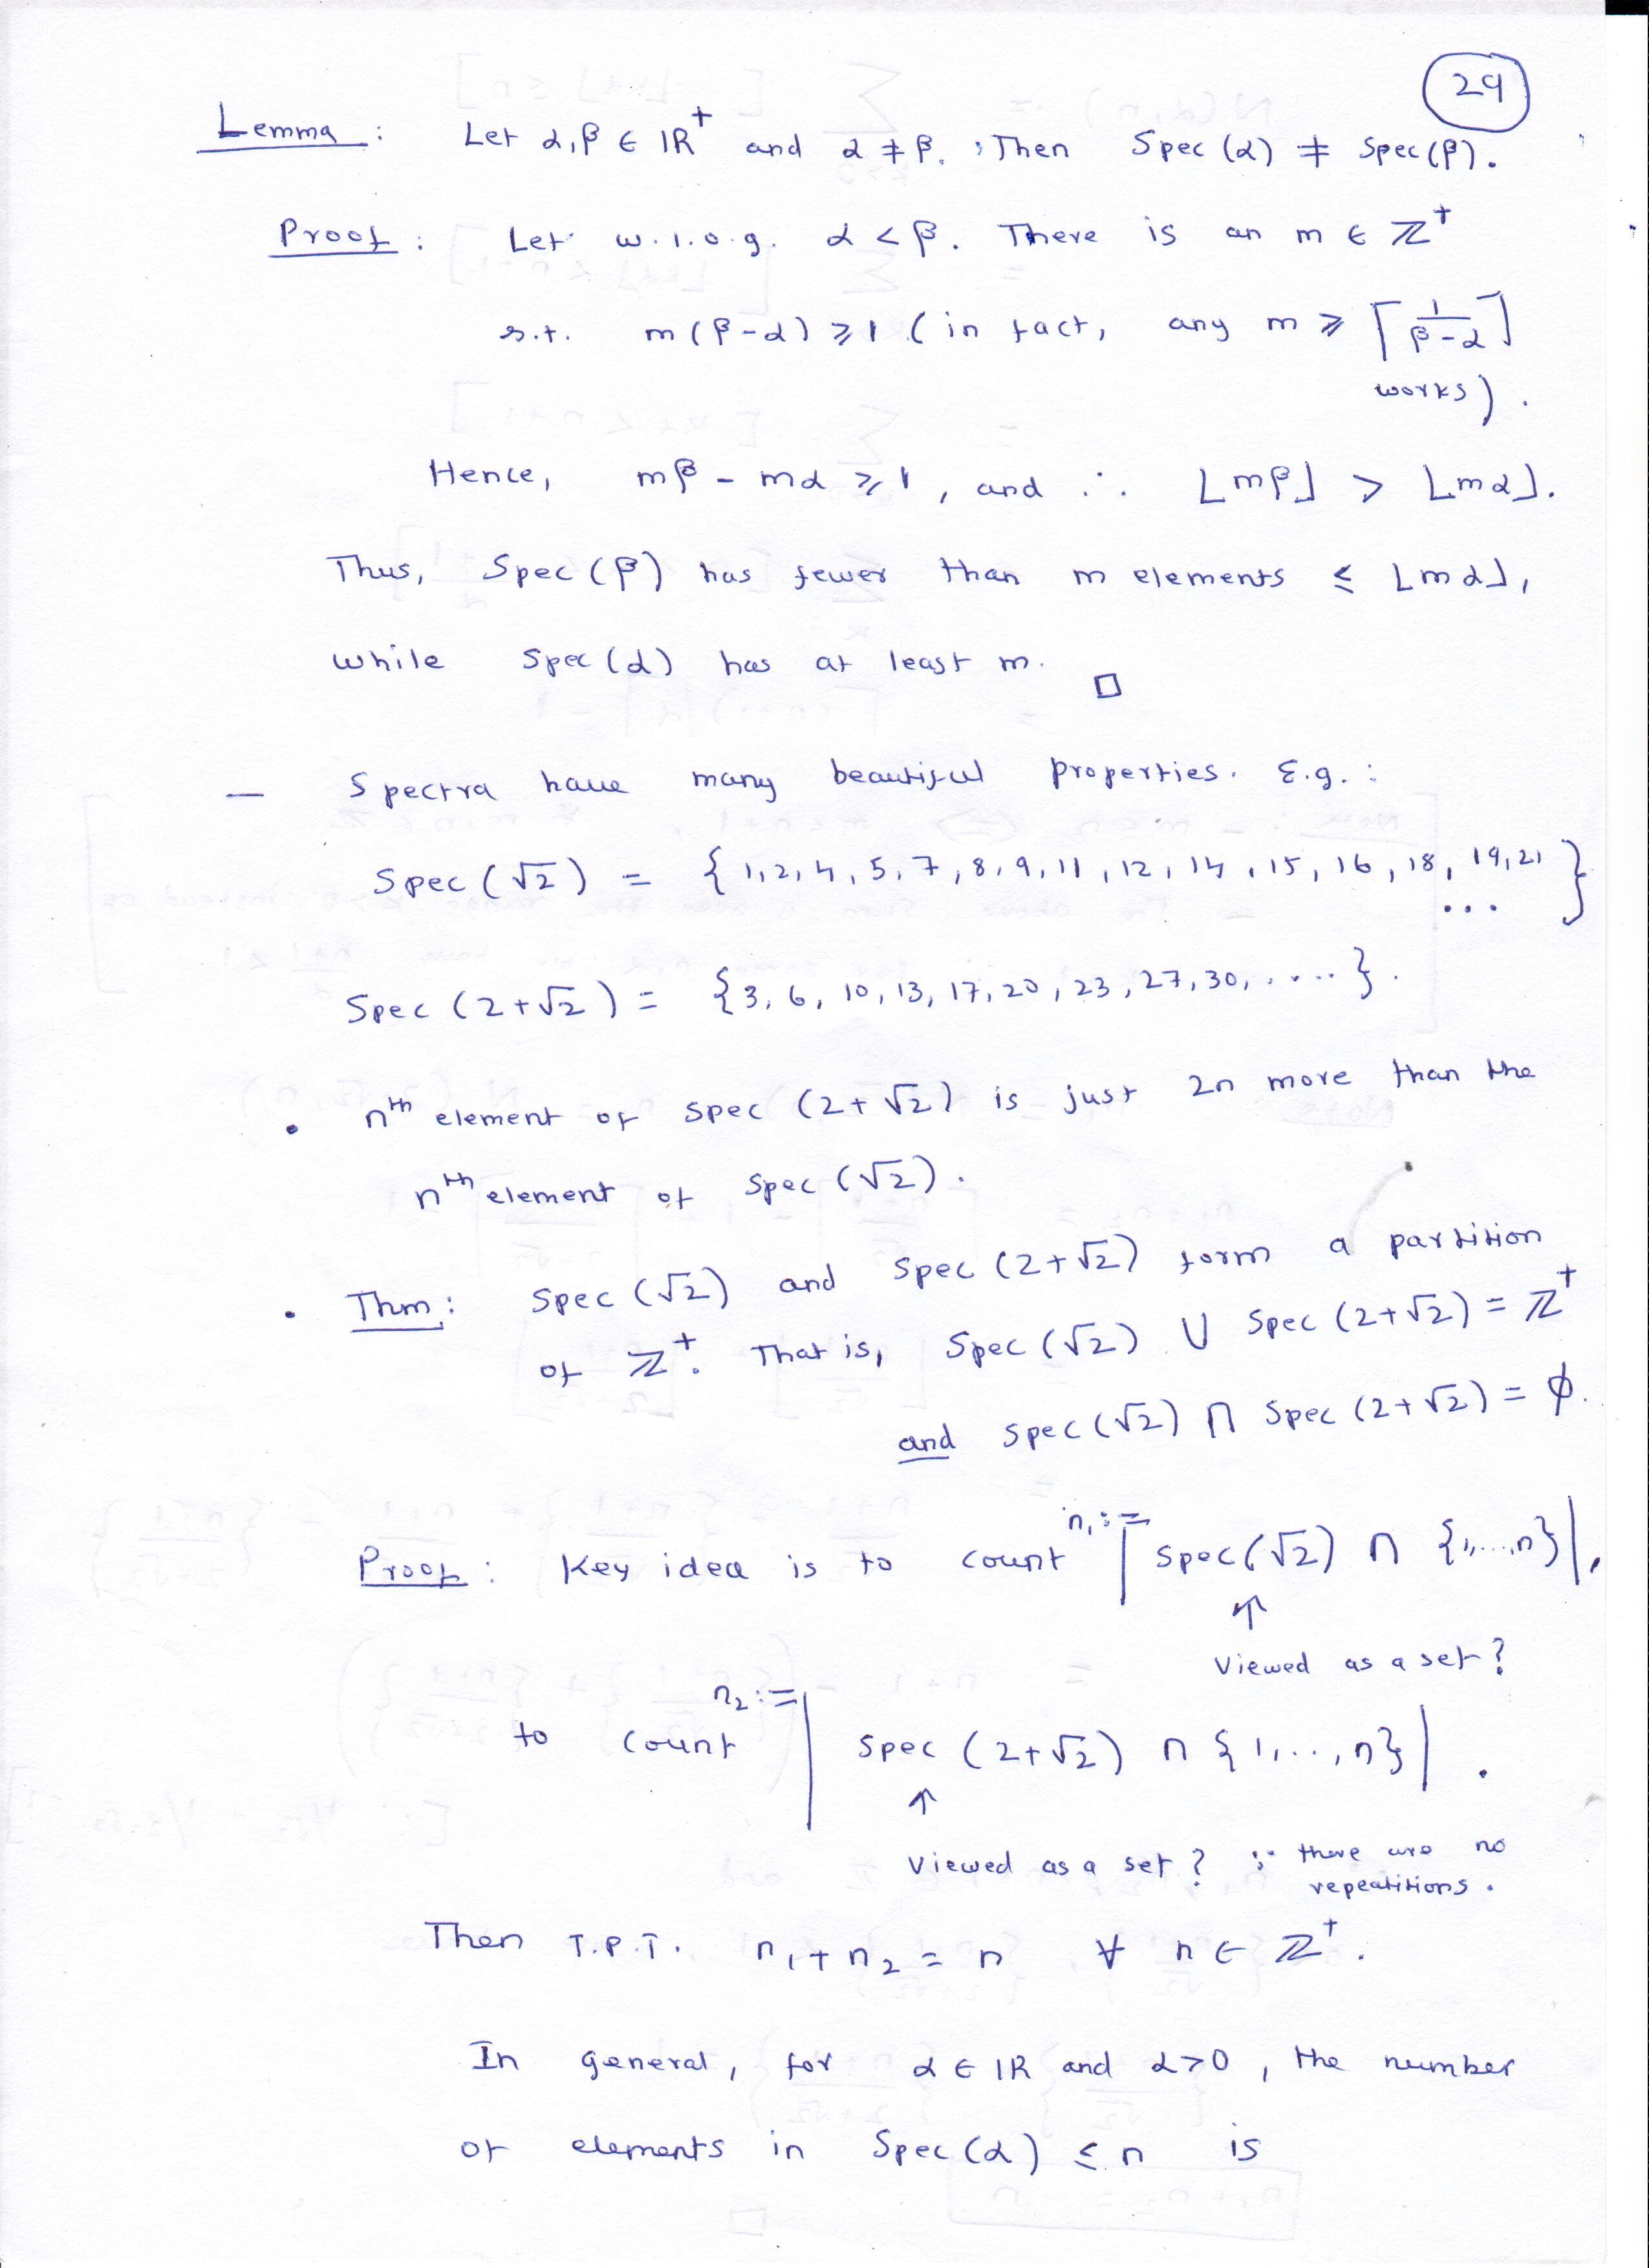 29
Lemma : Let α, β ∈ ℝ⁺ and α ≠ β. Then Spec (α) ≠ Spec (β).
Proof : Let w.l.o.g. α < β. There is an m ∈ ℤ⁺
s.t. m(β-α) ≥ 1 (in fact, any m ≥ ⌈1/(β-α)⌉
works).
Hence, mβ - mα ≥ 1, and ∴ ⌊mβ⌋ > ⌊mα⌋.
Thus, Spec (β) has fewer than m elements ≤ ⌊mα⌋,
while Spec (α) has at least m. □
— Spectra have many beautiful properties. E.g. :
Spec (√2) = { 1, 2, 4, 5, 7, 8, 9, 11, 12, 14, 15, 16, 18, 19, 21 ... }
Spec (2+√2) = {3, 6, 10, 13, 17, 20, 23, 27, 30, .... }.
• nᵗʰ element of Spec (2+√2) is just 2n more than the
nᵗʰ element of Spec (√2).
• Thm : Spec (√2) and Spec (2+√2) form a partition
of ℤ⁺. That is, Spec (√2) ∪ Spec (2+√2) = ℤ⁺
and Spec (√2) ∩ Spec (2+√2) = ϕ.
Proof : Key idea is to count n₁ := | Spec (√2) ∩ {1,...,n}|,
↑
Viewed as a set?
to count n₂ := | Spec (2+√2) ∩ {1,...,n}| .
↑
Viewed as a set? ∵ there are no
repeatitions.
Then T.P.T. n₁ + n₂ = n ∀ n ∈ ℤ⁺.
In general, for α ∈ ℝ and α > 0, the number
of elements in Spec (α) ≤ n is